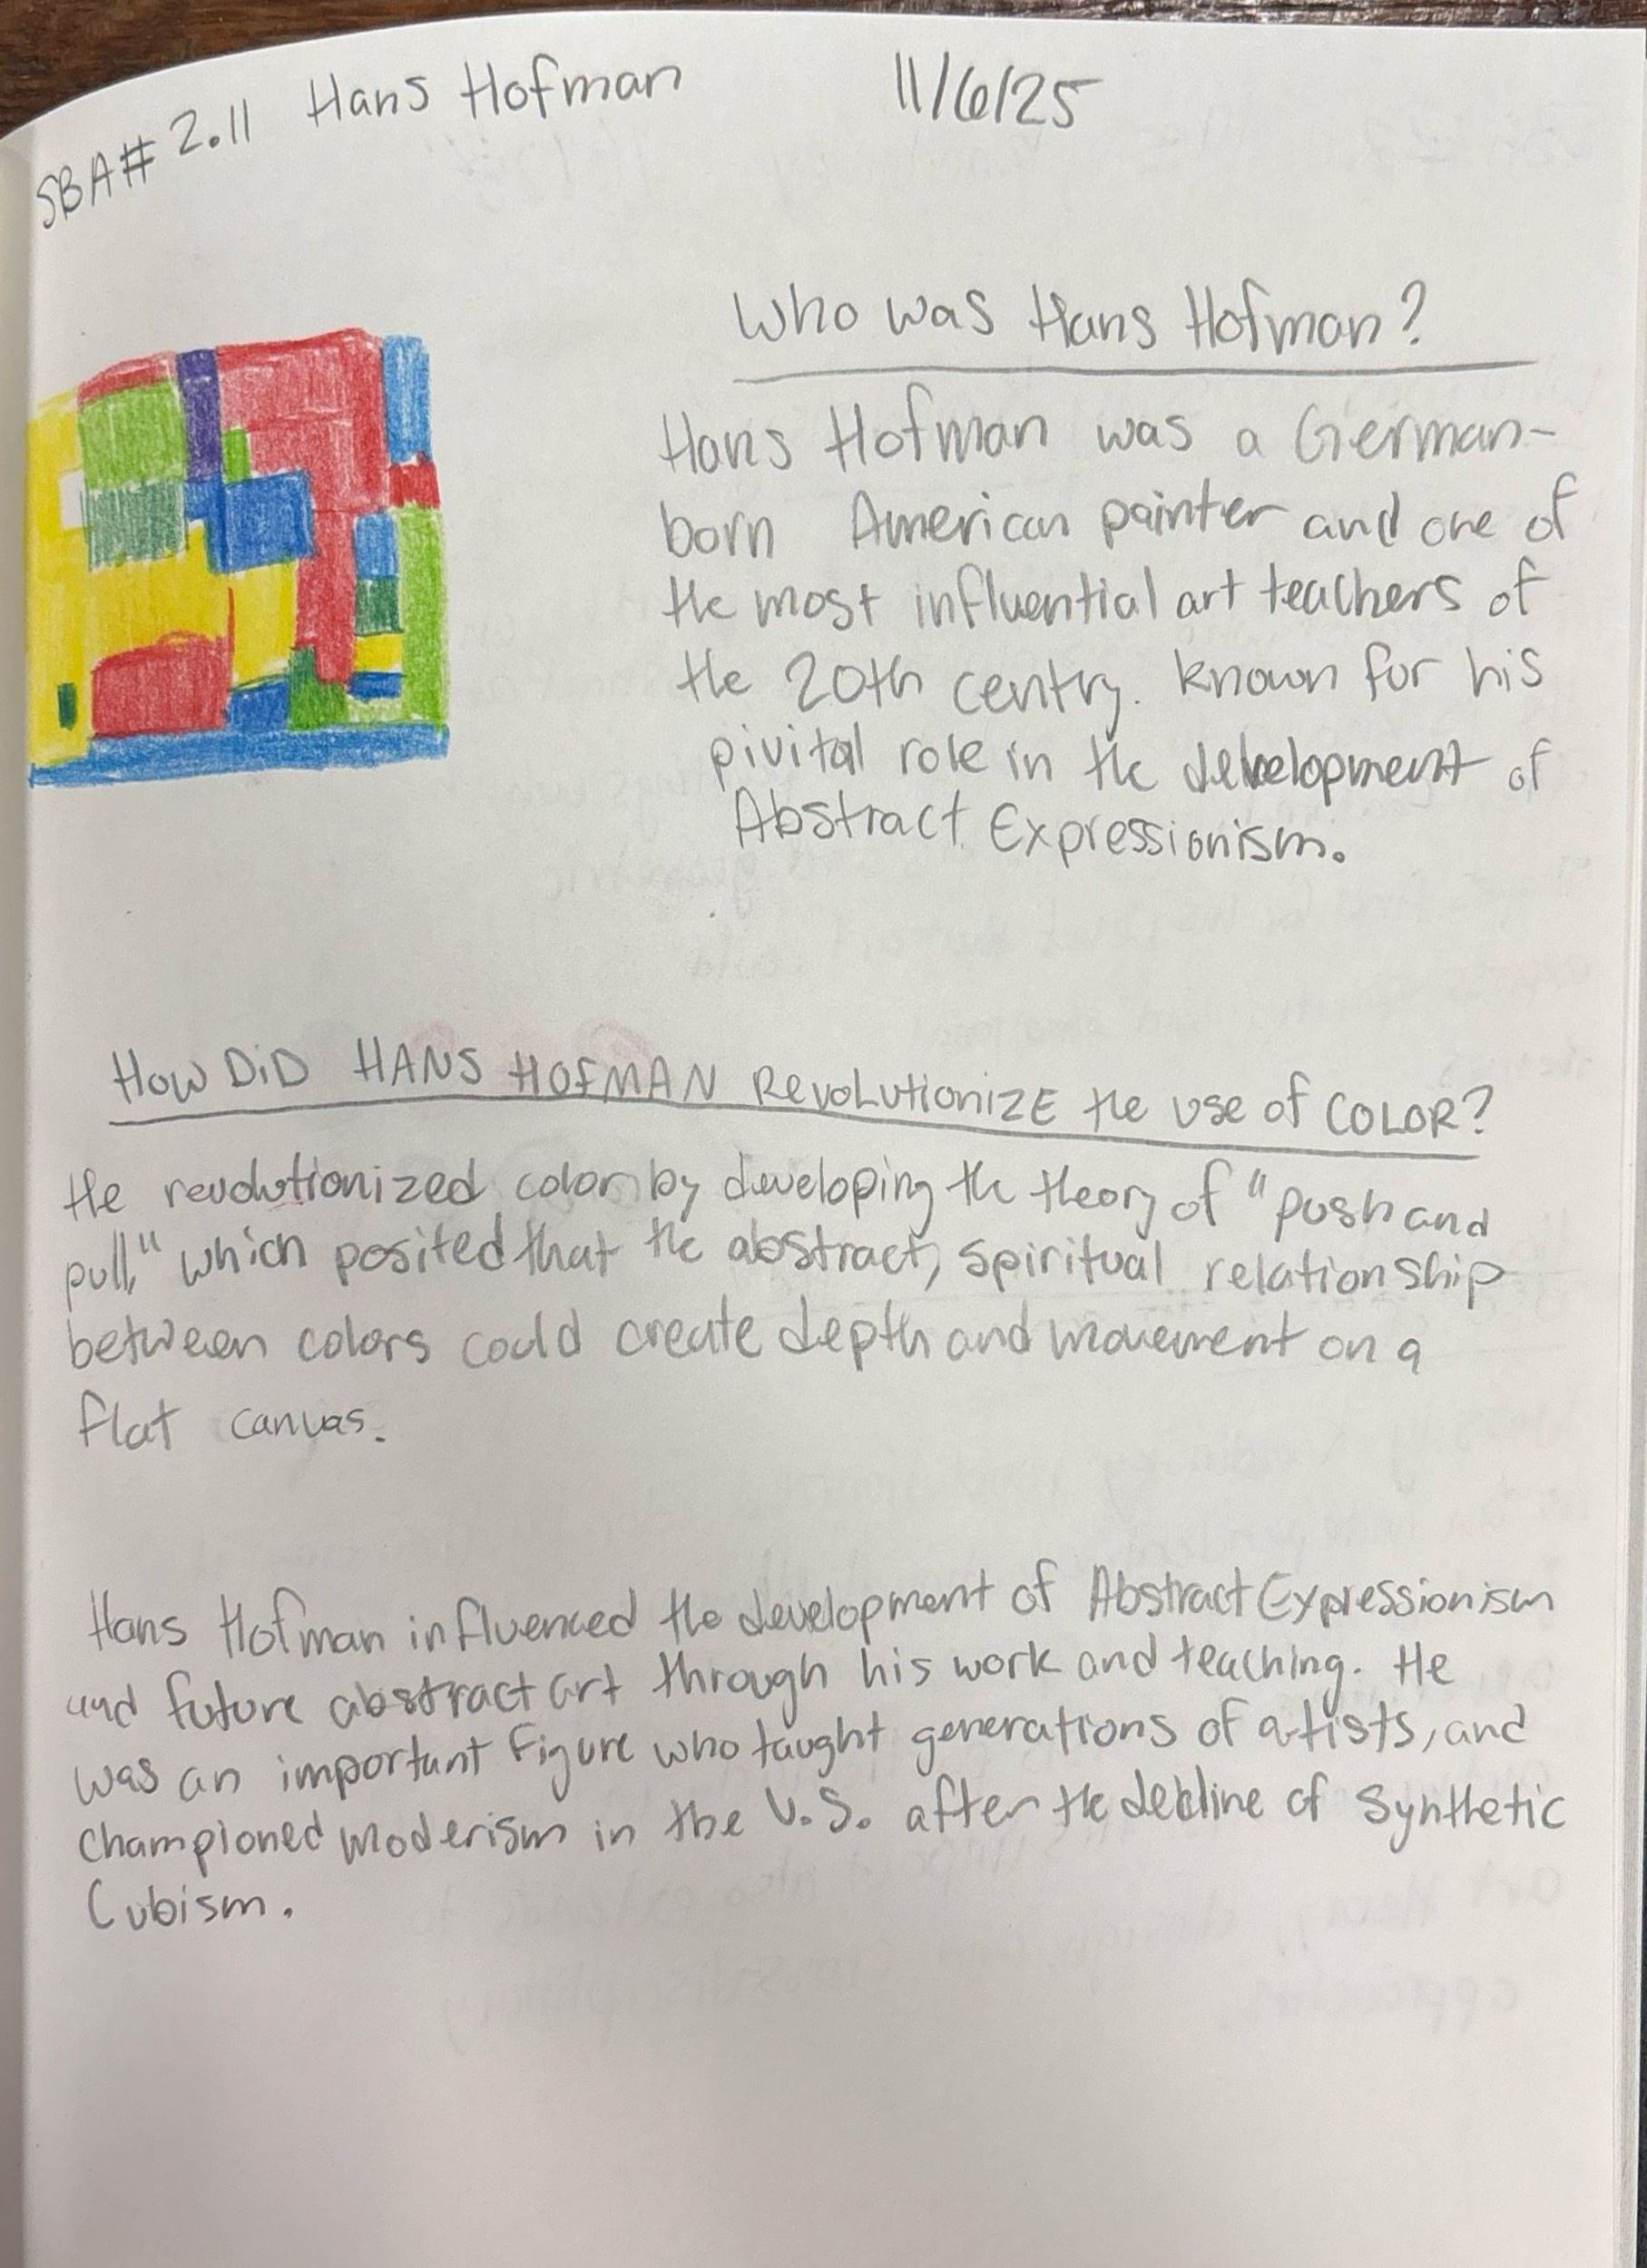 SBA# 2.11 Hans Hofman 11/6/25
Who was Hans Hofman?
Hans Hofman was a German-
born American painter and one of
the most influential art teachers of
the 20th centry. Known for his
pivital role in the development of
Abstract Expressionism.
HOW DiD HANS HOFMAN REVOLUtiONIZE the use of COLOR?
He revolutionized color by developing the theory of "push and
pull," which posited that the abstract, spiritual relationship
between colors could create depth and movement on a
flat canvas.
Hans Hofman influenced the development of Abstract Expressionism
and future abstract art through his work and teaching. He
was an important Figure who taught generations of artists, and
championed moderism in the U.S. after the decline of Synthetic
Cubism.